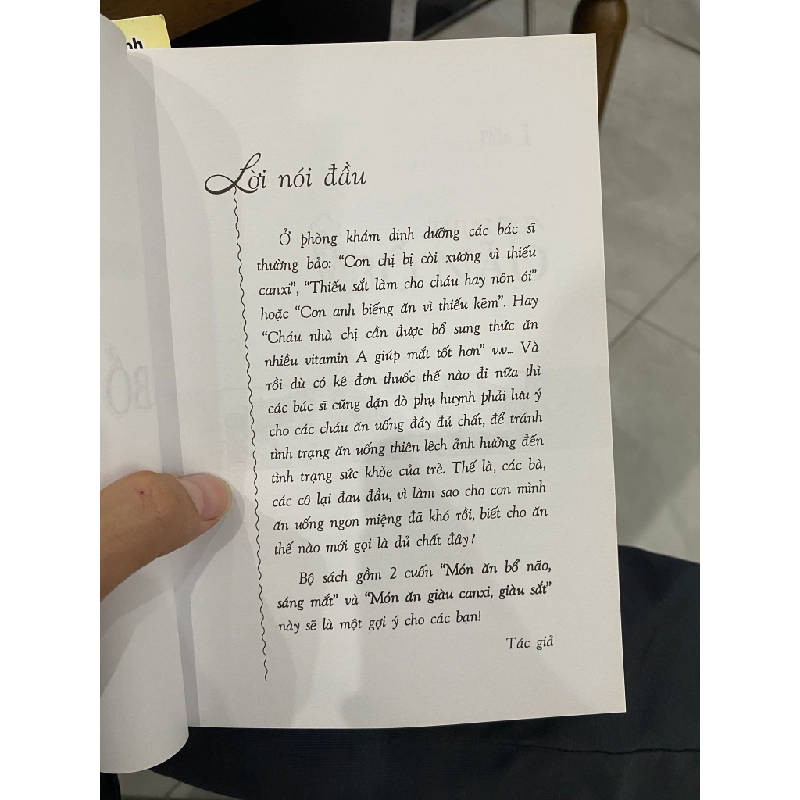 nh
Lời nói đầu
Ở phòng khám dinh dưỡng các bác sĩ
thường bảo: "Con chị bị còi xương vì thiếu
canxi", "Thiếu sắt làm cho cháu hay nôn ói"
hoặc "Con anh biếng ăn vì thiếu kẽm". Hay
"Cháu nhà chị cần được bổ sung thức ăn
nhiều vitamin A giúp mắt tốt hơn" v.v... Và
rồi dù có kê đơn thuốc thế nào đi nữa thì
các bác sĩ cũng dặn dò phụ huynh phải lưu ý
cho các cháu ăn uống đầy đủ chất, để tránh
tình trạng ăn uống thiên lệch ảnh hưởng đến
tình trạng sức khỏe của trẻ. Thế là, các bà,
các cô lại đau đầu, vì làm sao cho con mình
ăn uống ngon miệng đã khó rồi, biết cho ăn
thế nào mới gọi là đủ chất đây!
Bộ sách gồm 2 cuốn "Món ăn bổ não,
sáng mắt" và "Món ăn giàu canxi, giàu sắt"
này sẽ là một gợi ý cho các bạn!
Tác giả